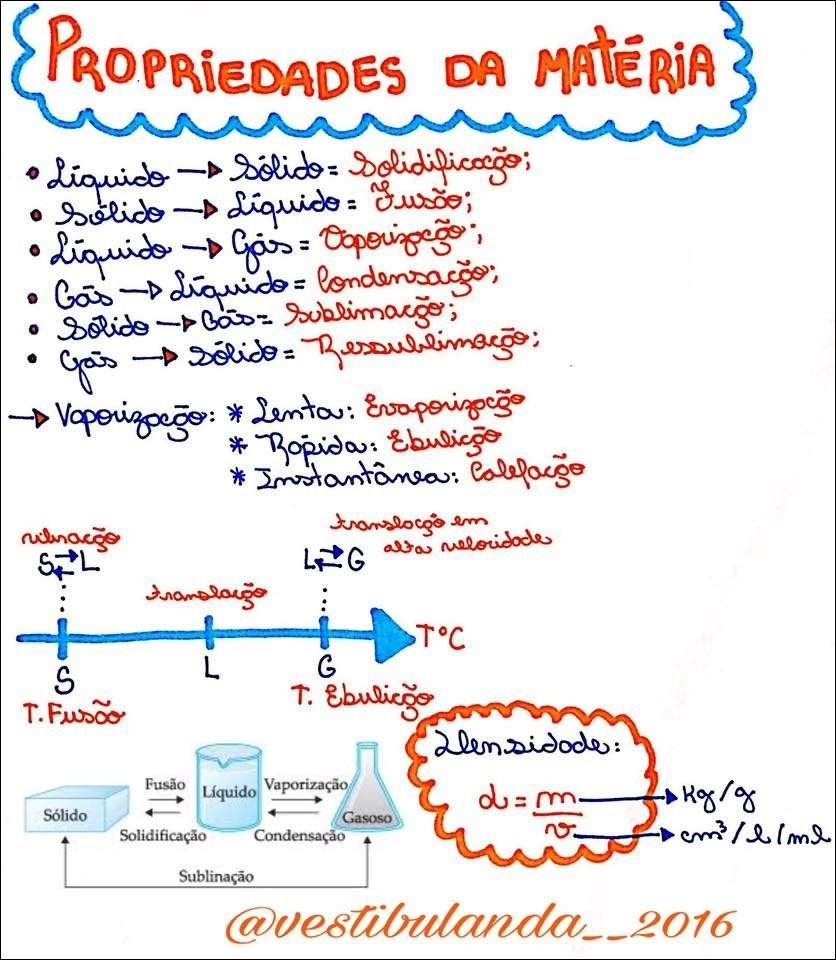 PROPRIEDADES DA MATÉRIA
• Líquido → Sólido = Solidificação;
• Sólido → Líquido = Fusão;
• Líquido → Gás = Vaporização;
• Gás → Líquido = Condensação;
• Sólido → Gás = Sublimação;
• Gás → Sólido = Ressublimação;
→ Vaporização: * Lenta: Evaporização
* Rápida: Ebulição
* Instantânea: Calefação
vibração
translação em
alta velocidade
S ⇄ L
L ⇄ G
translação
T°C
S
L
G
T. Fusão
T. Ebulição
Densidade:
d = m/v
→ Kg/g
→ cm³/l/ml
Sólido
Fusão
Solidificação
Líquido
Vaporização
Condensação
Gasoso
Sublinação
@vestibulanda__2016